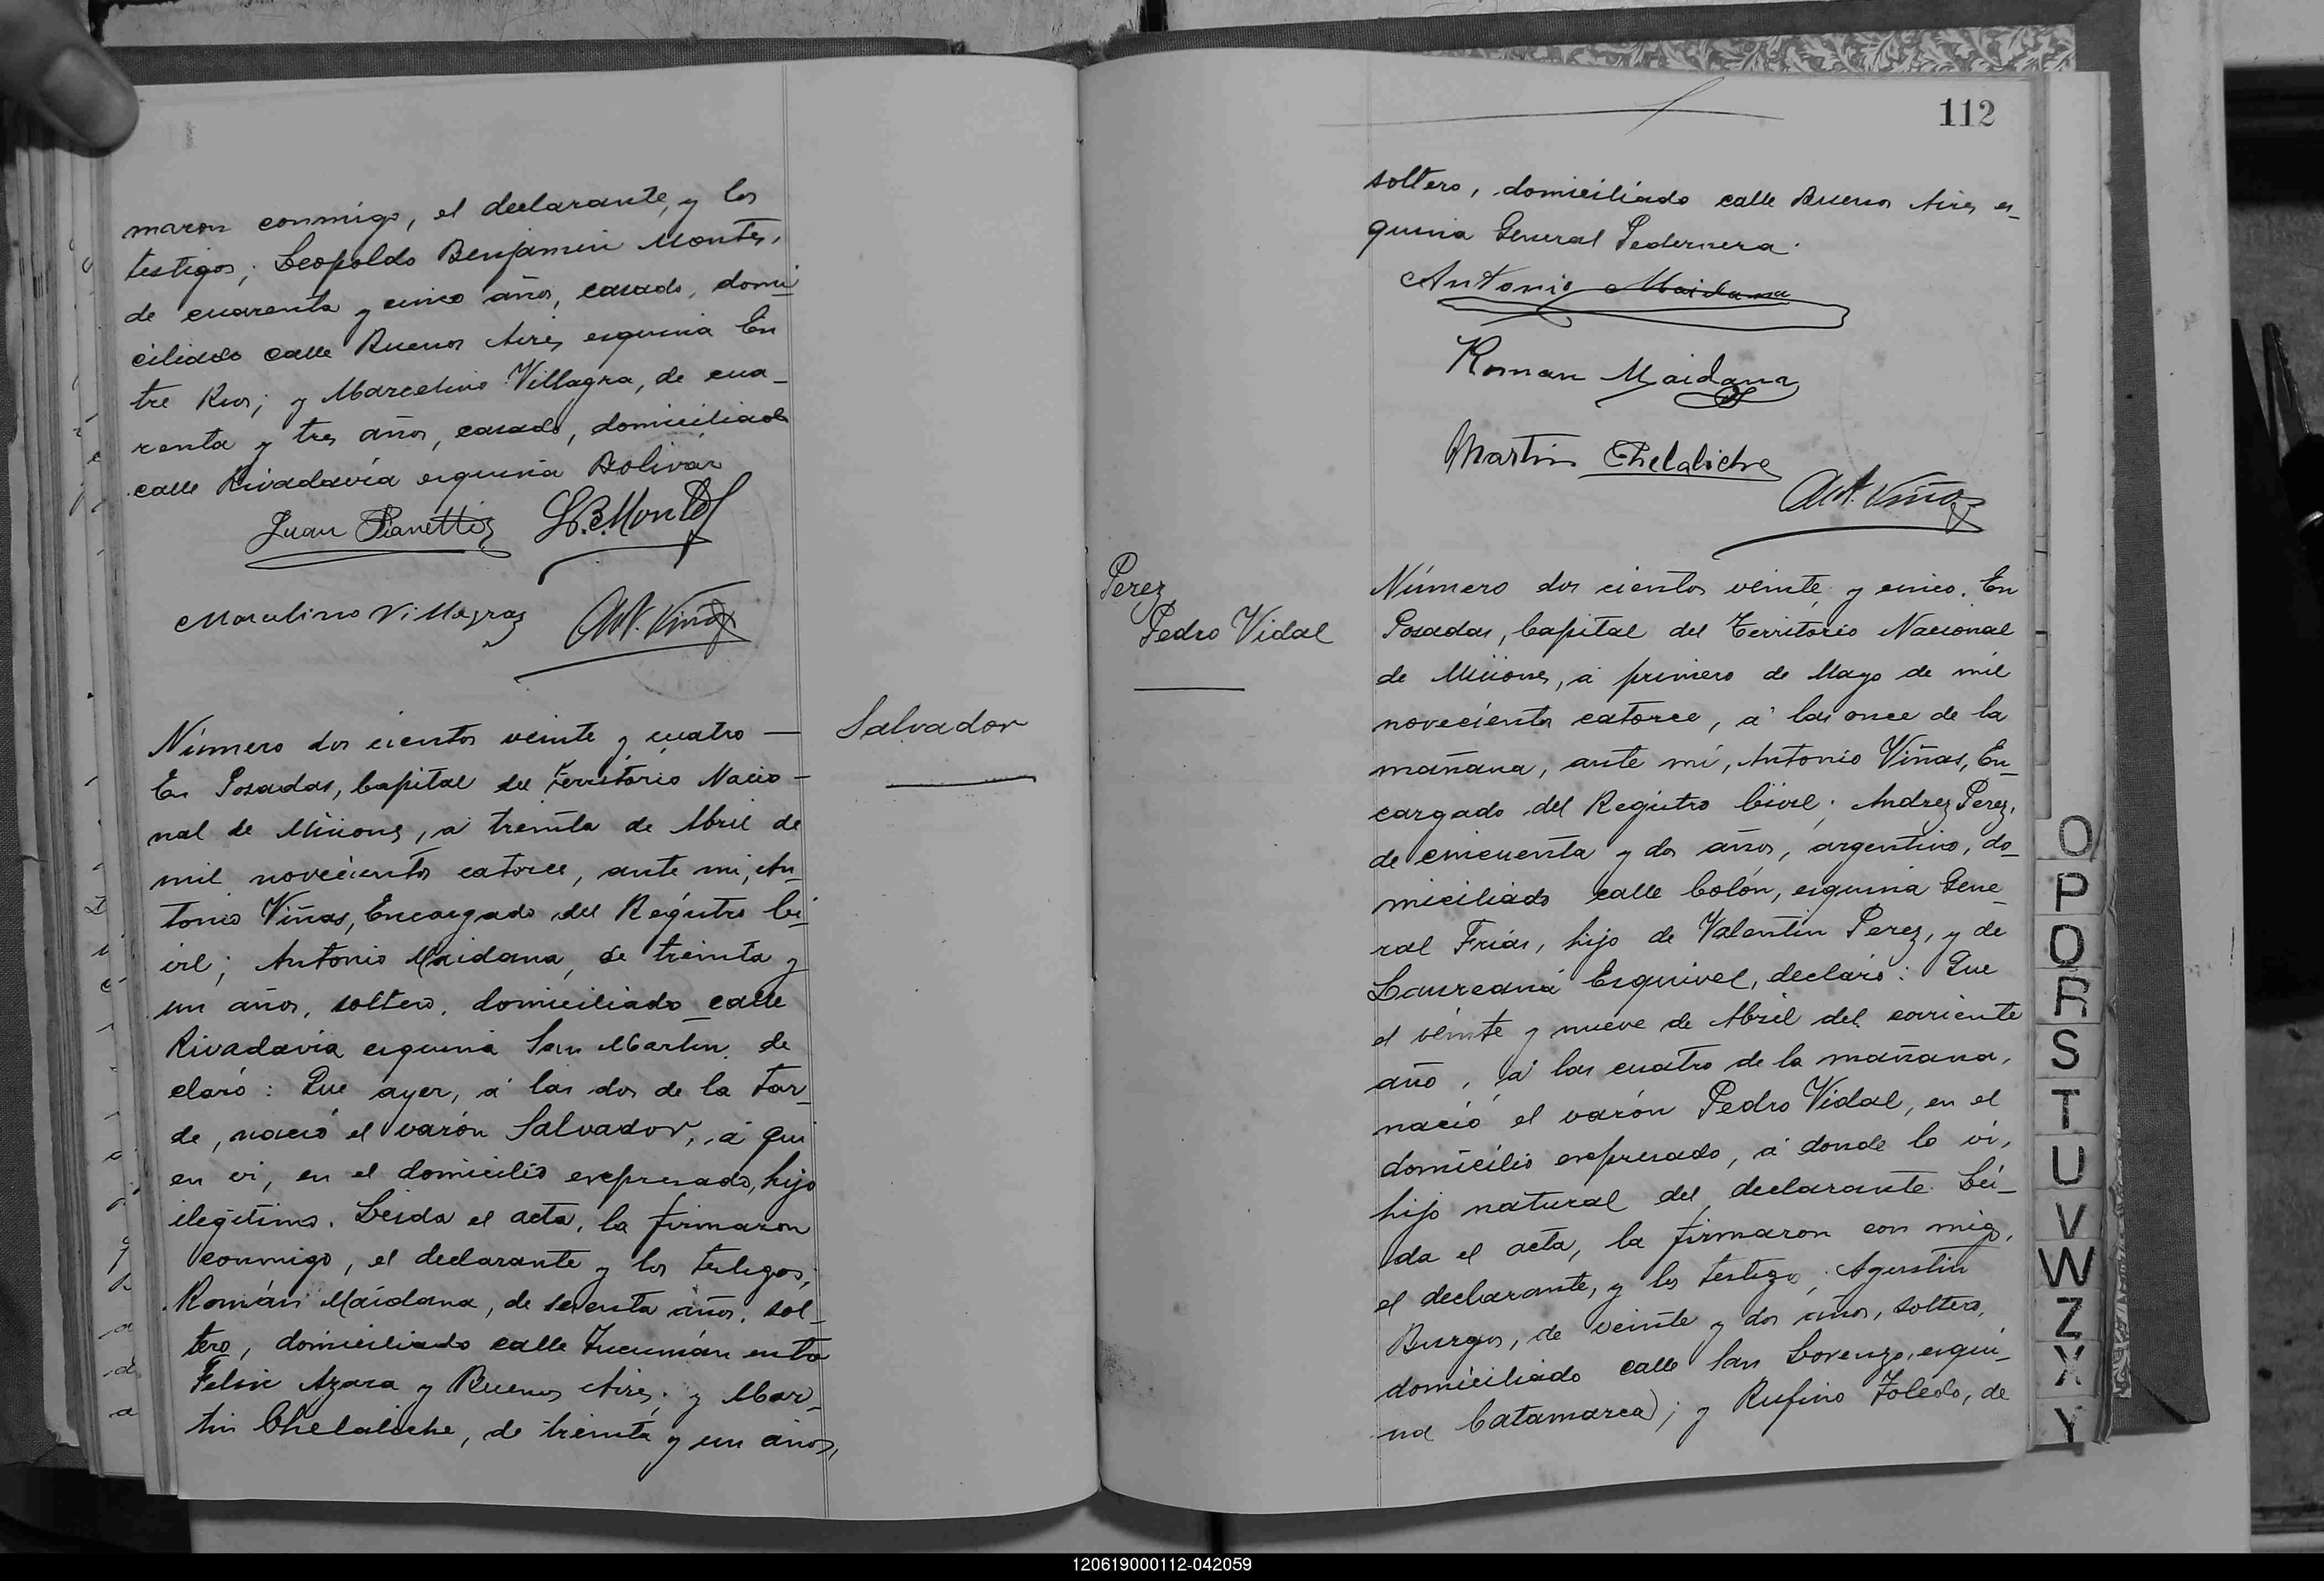 maron conmigo, el declarante, y los
testigos; Leopoldo Benjamin Montes,
de cuarenta y cinco años, casado, domi
ciliado calle Buenos Aires esquina En
tre Rios; y Marcelino Villagra, de cua-
renta y tres años, casado, domiciliado
calle Rivadavia esquina Bolivar
Juan Pianetti L.B. Montes
Marcelino Villagra Ant. Viñas
Número dos cientos veinte y cuatro —
En Posadas, Capital del Territorio Nacio-
nal de Misiones, á treinta de Abril de
mil novecientos catorce, ante mi, An-
tonio Viñas, Encargado del Registro Ci-
vil; Antonio Maidana, de treinta y
un años, soltero, domiciliado calle
Rivadavia esquina San Martin, de
claró: Que ayer, á las dos de la tar-
de, nació el varón Salvador, á qui
en vi, en el domicilio expresado, hijo
ilegitimo. Leida el acta, la firmaron
conmigo, el declarante y los testigos;
Román Maidana, de setenta años, sol-
tero, domiciliado calle Tucumán entre
Felix Azara y Buenos Aires; y Mar-
tin Chelaliche, de treinta y un años,
Salvador
112
soltero, domiciliado calle Buenos Aires es-
quina General Pedernera.
Antonio Maidana
Roman Maidana
Martin Chelaliche
Ant. Viñas
Perez
Pedro Vidal
Número dos cientos veinte y cinco. En
Posadas, Capital del Territorio Nacional
de Misiones, á primero de Mayo de mil
novecientos catorce, á las once de la
mañana, ante mi, Antonio Viñas, En-
cargado del Registro Civil; Andrez Perez,
de cincuenta y dos años, argentino, do-
miciliado calle Colón, esquina Gene
ral Frias, hijo de Valentin Perez, y de
Laureana Esquivel, declaró: Que
el veinte y nueve de Abril del corriente
año, á las cuatro de la mañana,
nació el varón Pedro Vidal, en el
domicilio expresado, á donde lo vi,
hijo natural del declarante. Lei-
da el acta, la firmaron con migo,
el declarante, y los testigos; Agustin
Burgos, de veinte y dos años, soltero,
domiciliado calle San Lorenzo, esqui-
na Catamarca); y Rufino Toledo, de
O
P
Q
R
S
T
U
V
W
Z
X
Y
120619000112-042059